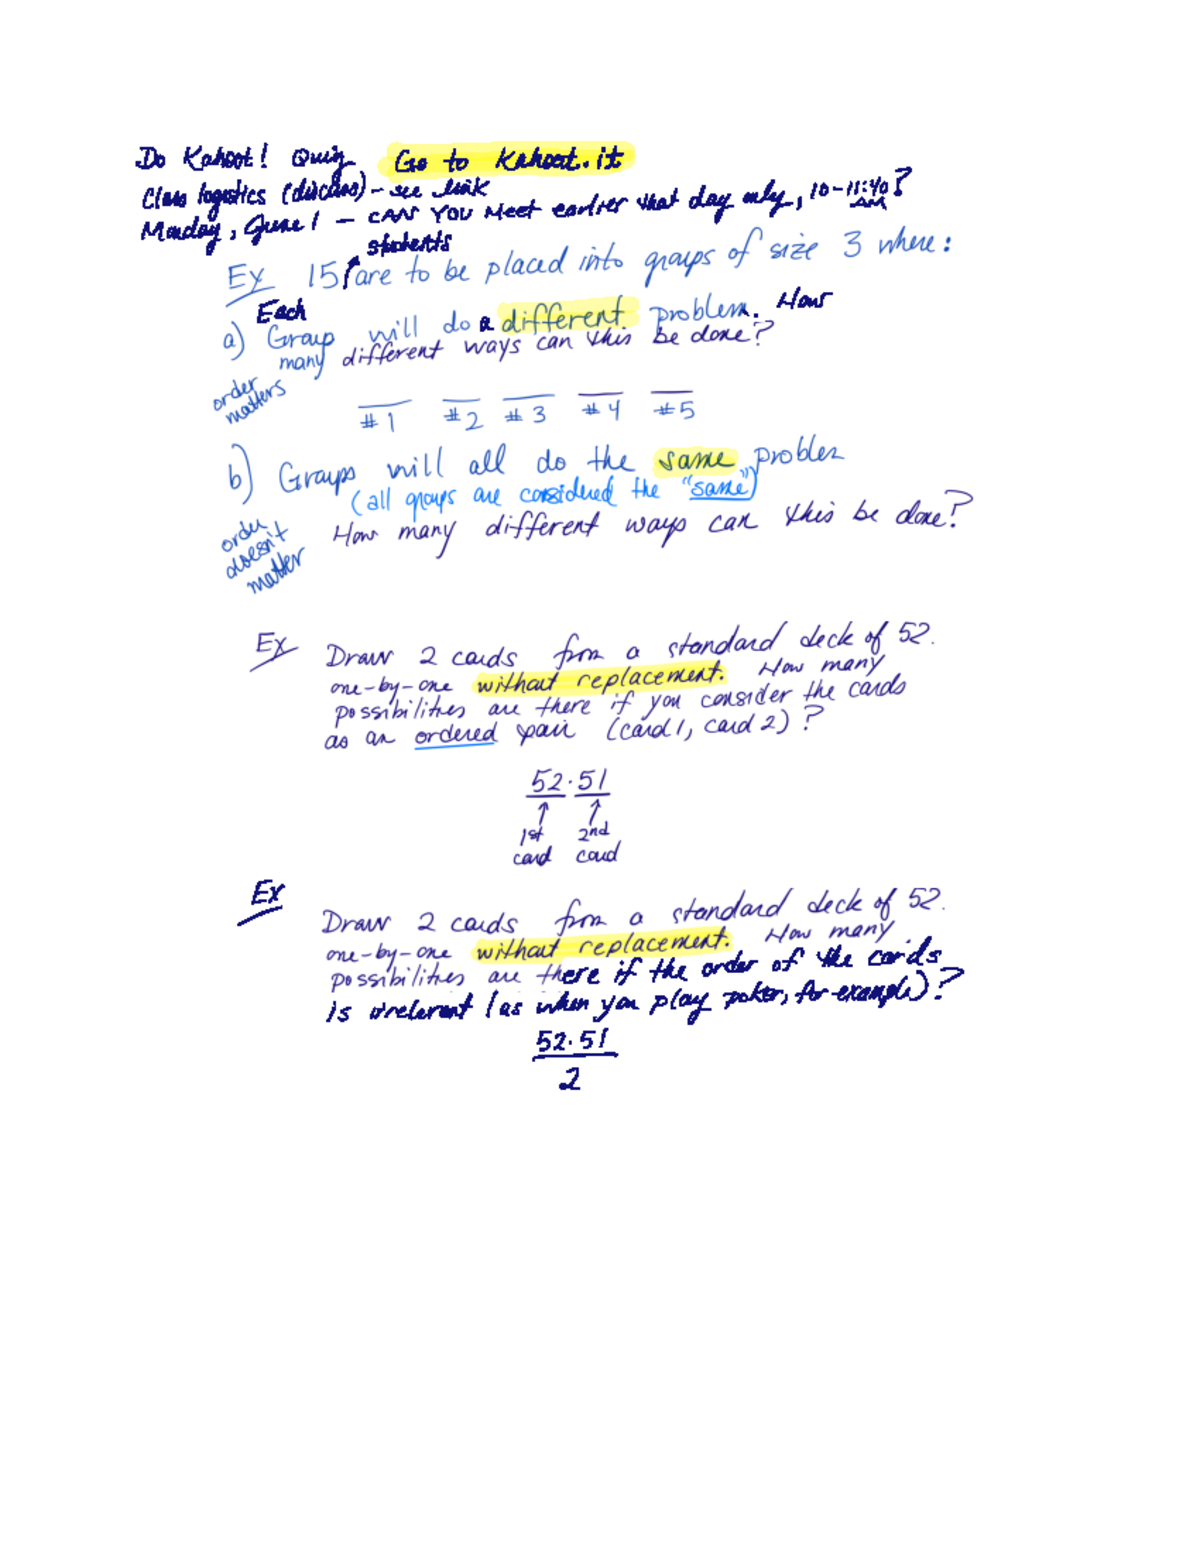 Do Kahoot! Quiz Go to Kahoot.it
Class logistics (discuss) - see link
Monday, June 1 - CAN YOU Meet earlier that day only, 10-11:40 AM?
students
Ex 15 are to be placed into groups of size 3 where:
Each
a) Group will do a different problem. How
many different ways can this be done?
order
matters
#1 #2 #3 #4 #5
b) Groups will all do the same problem
(all groups are considered the "same")
How many different ways can this be done?
order
doesn't
matter
Ex Draw 2 cards from a standard deck of 52.
one-by-one without replacement. How many
possibilities are there if you consider the cards
as an ordered pair (card 1, card 2)?
52·51
1st 2nd
card card
Ex
Draw 2 cards from a standard deck of 52.
one-by-one without replacement. How many
possibilities are there if the order of the cards
is irrelevant (as when you play poker, for example)?
52·51
2